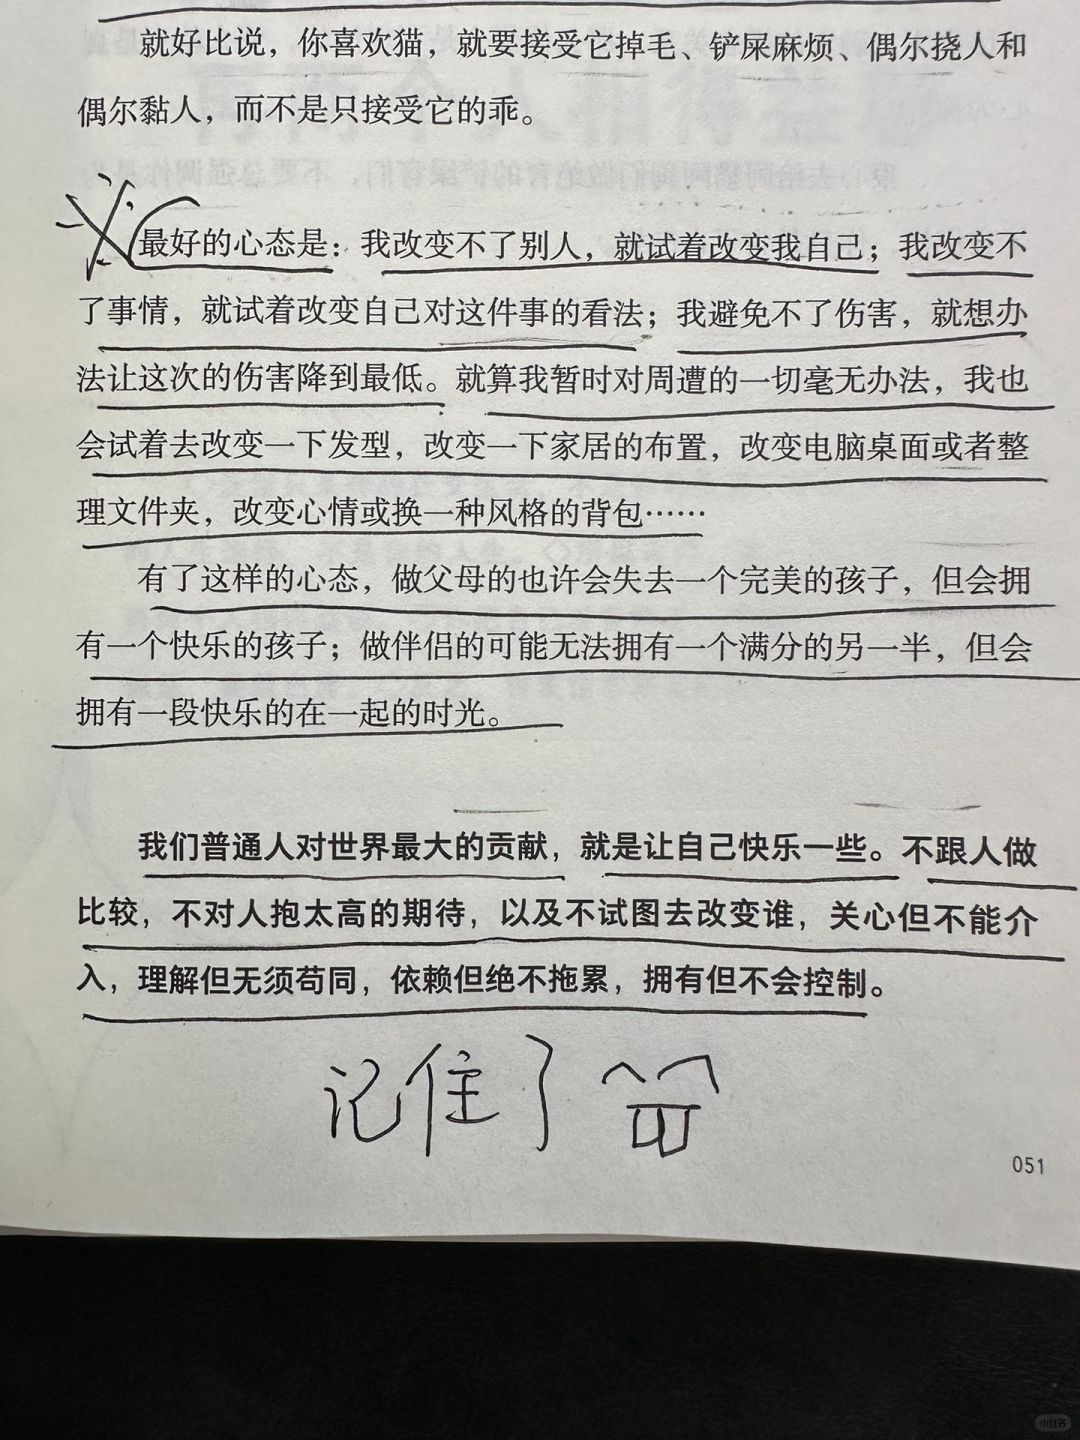 就好比说，你喜欢猫，就要接受它掉毛、铲屎麻烦、偶尔挠人和
偶尔黏人，而不是只接受它的乖。
最好的心态是：我改变不了别人，就试着改变我自己；我改变不
了事情，就试着改变自己对这件事的看法；我避免不了伤害，就想办
法让这次的伤害降到最低。就算我暂时对周遭的一切毫无办法，我也
会试着去改变一下发型，改变一下家居的布置，改变电脑桌面或者整
理文件夹，改变心情或换一种风格的背包……
有了这样的心态，做父母的也许会失去一个完美的孩子，但会拥
有一个快乐的孩子；做伴侣的可能无法拥有一个满分的另一半，但会
拥有一段快乐的在一起的时光。
我们普通人对世界最大的贡献，就是让自己快乐一些。不跟人做
比较，不对人抱太高的期待，以及不试图去改变谁，关心但不能介
入，理解但无须苟同，依赖但绝不拖累，拥有但不会控制。
记住了
051
小红书